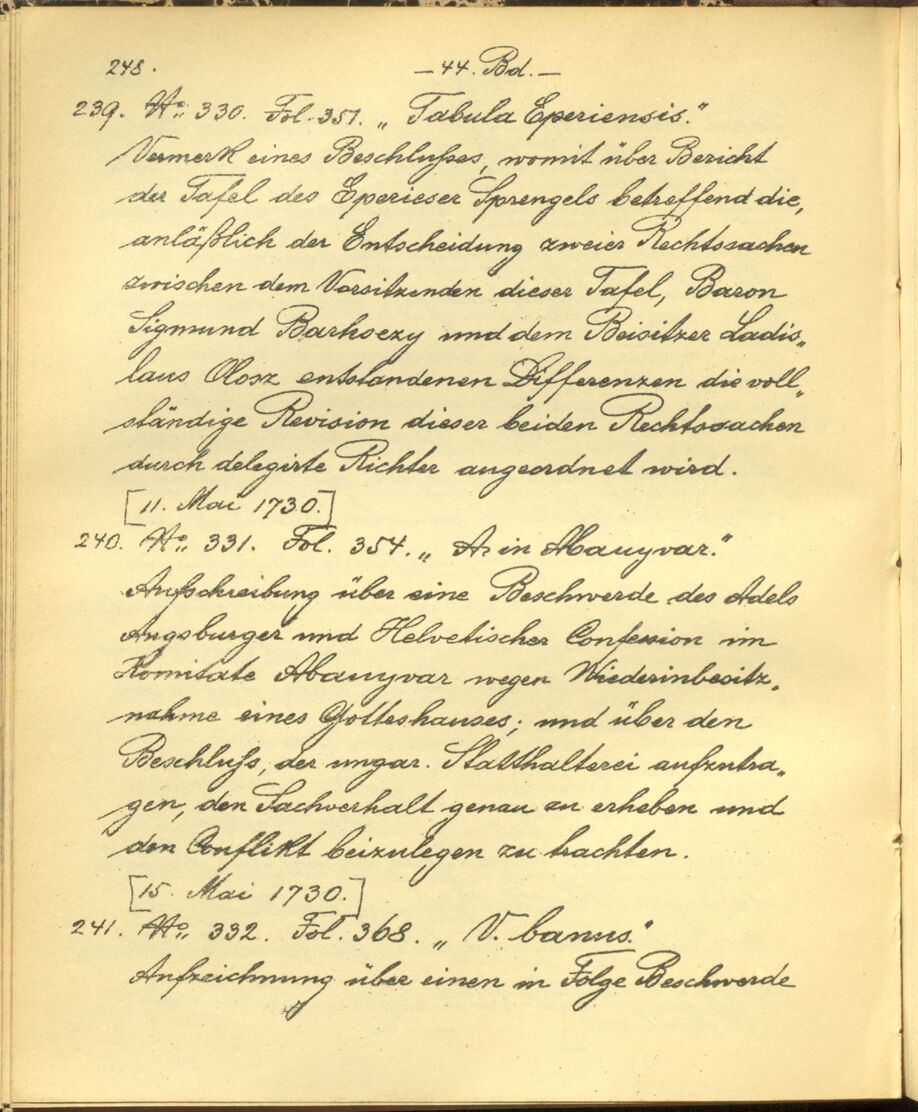 248.
—44. Bd.—
239. No„ 330. Fol. 351. „Tabula Eperiensis.“
Vermerk eines Beschlußes, womit über Bericht
der Tafel des Eperieser Sprengels betreffend die,
anläßlich der Entscheidung zweier Rechtssachen
zwischen dem Vorsitzenden dieser Tafel, Baron
Sigmund Barkoczy und dem Beisitzer Ladis„
laus Olosz entstandenen Differenzen die voll„
ständige Revision dieser beiden Rechtssachen
durch delegirte Richter angeordnet wird.
[11. Mai 1730.]
240. No„ 331. Fol. 354. „A. in Abauyvar.“
Aufschreibung über eine Beschwerde des Adels
Augsburger und Helvetischer Confession im
Komitate Abauyvar wegen Wiederinbesitz„
nahme eines Gotteshauses; und über den
Beschluß, der ungar. Statthalterei aufzutra„
gen, den Sachverhalt genau zu erheben und
den Conflikt beizulegen zu trachten.
[15. Mai 1730.]
241. No„ 332. Fol. 368. „V. banus.“
Aufzeichnung über einen in Folge Beschwerde